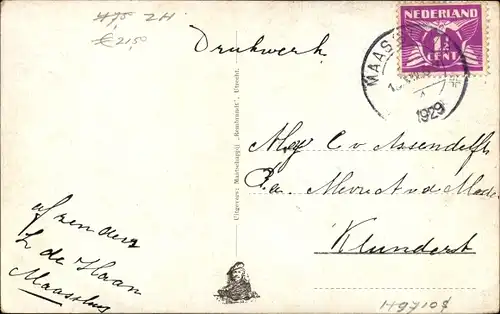 Hys ZH
€ 21,50
Drukwerk
NEDERLAND
1½
CENT
MAAS
1929
Mej C v Assendelft
p.a. Mevr v d Made
Klundert
afzender
L de Haan
Maassluis
Uitgevers: Maatschappij „Rembrandt", Utrecht.
H9710$